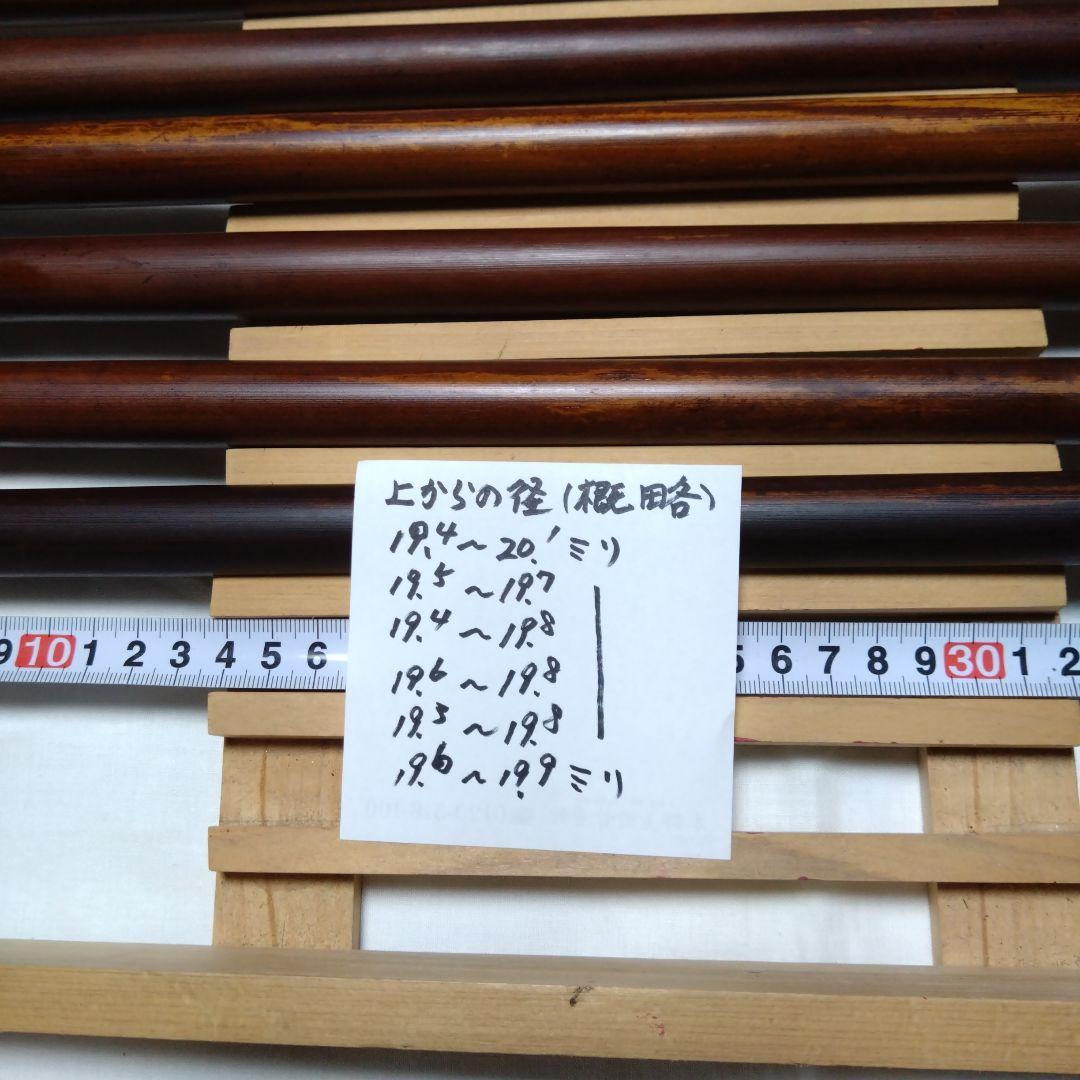 上からの径(概略)
19.4～20.1ミリ
19.5～19.7
19.4～19.8
19.6～19.8
19.5～19.8
19.6～19.9ミリ
9 10 1 2 3 4 5 6 5 6 7 8 9 30 1 2